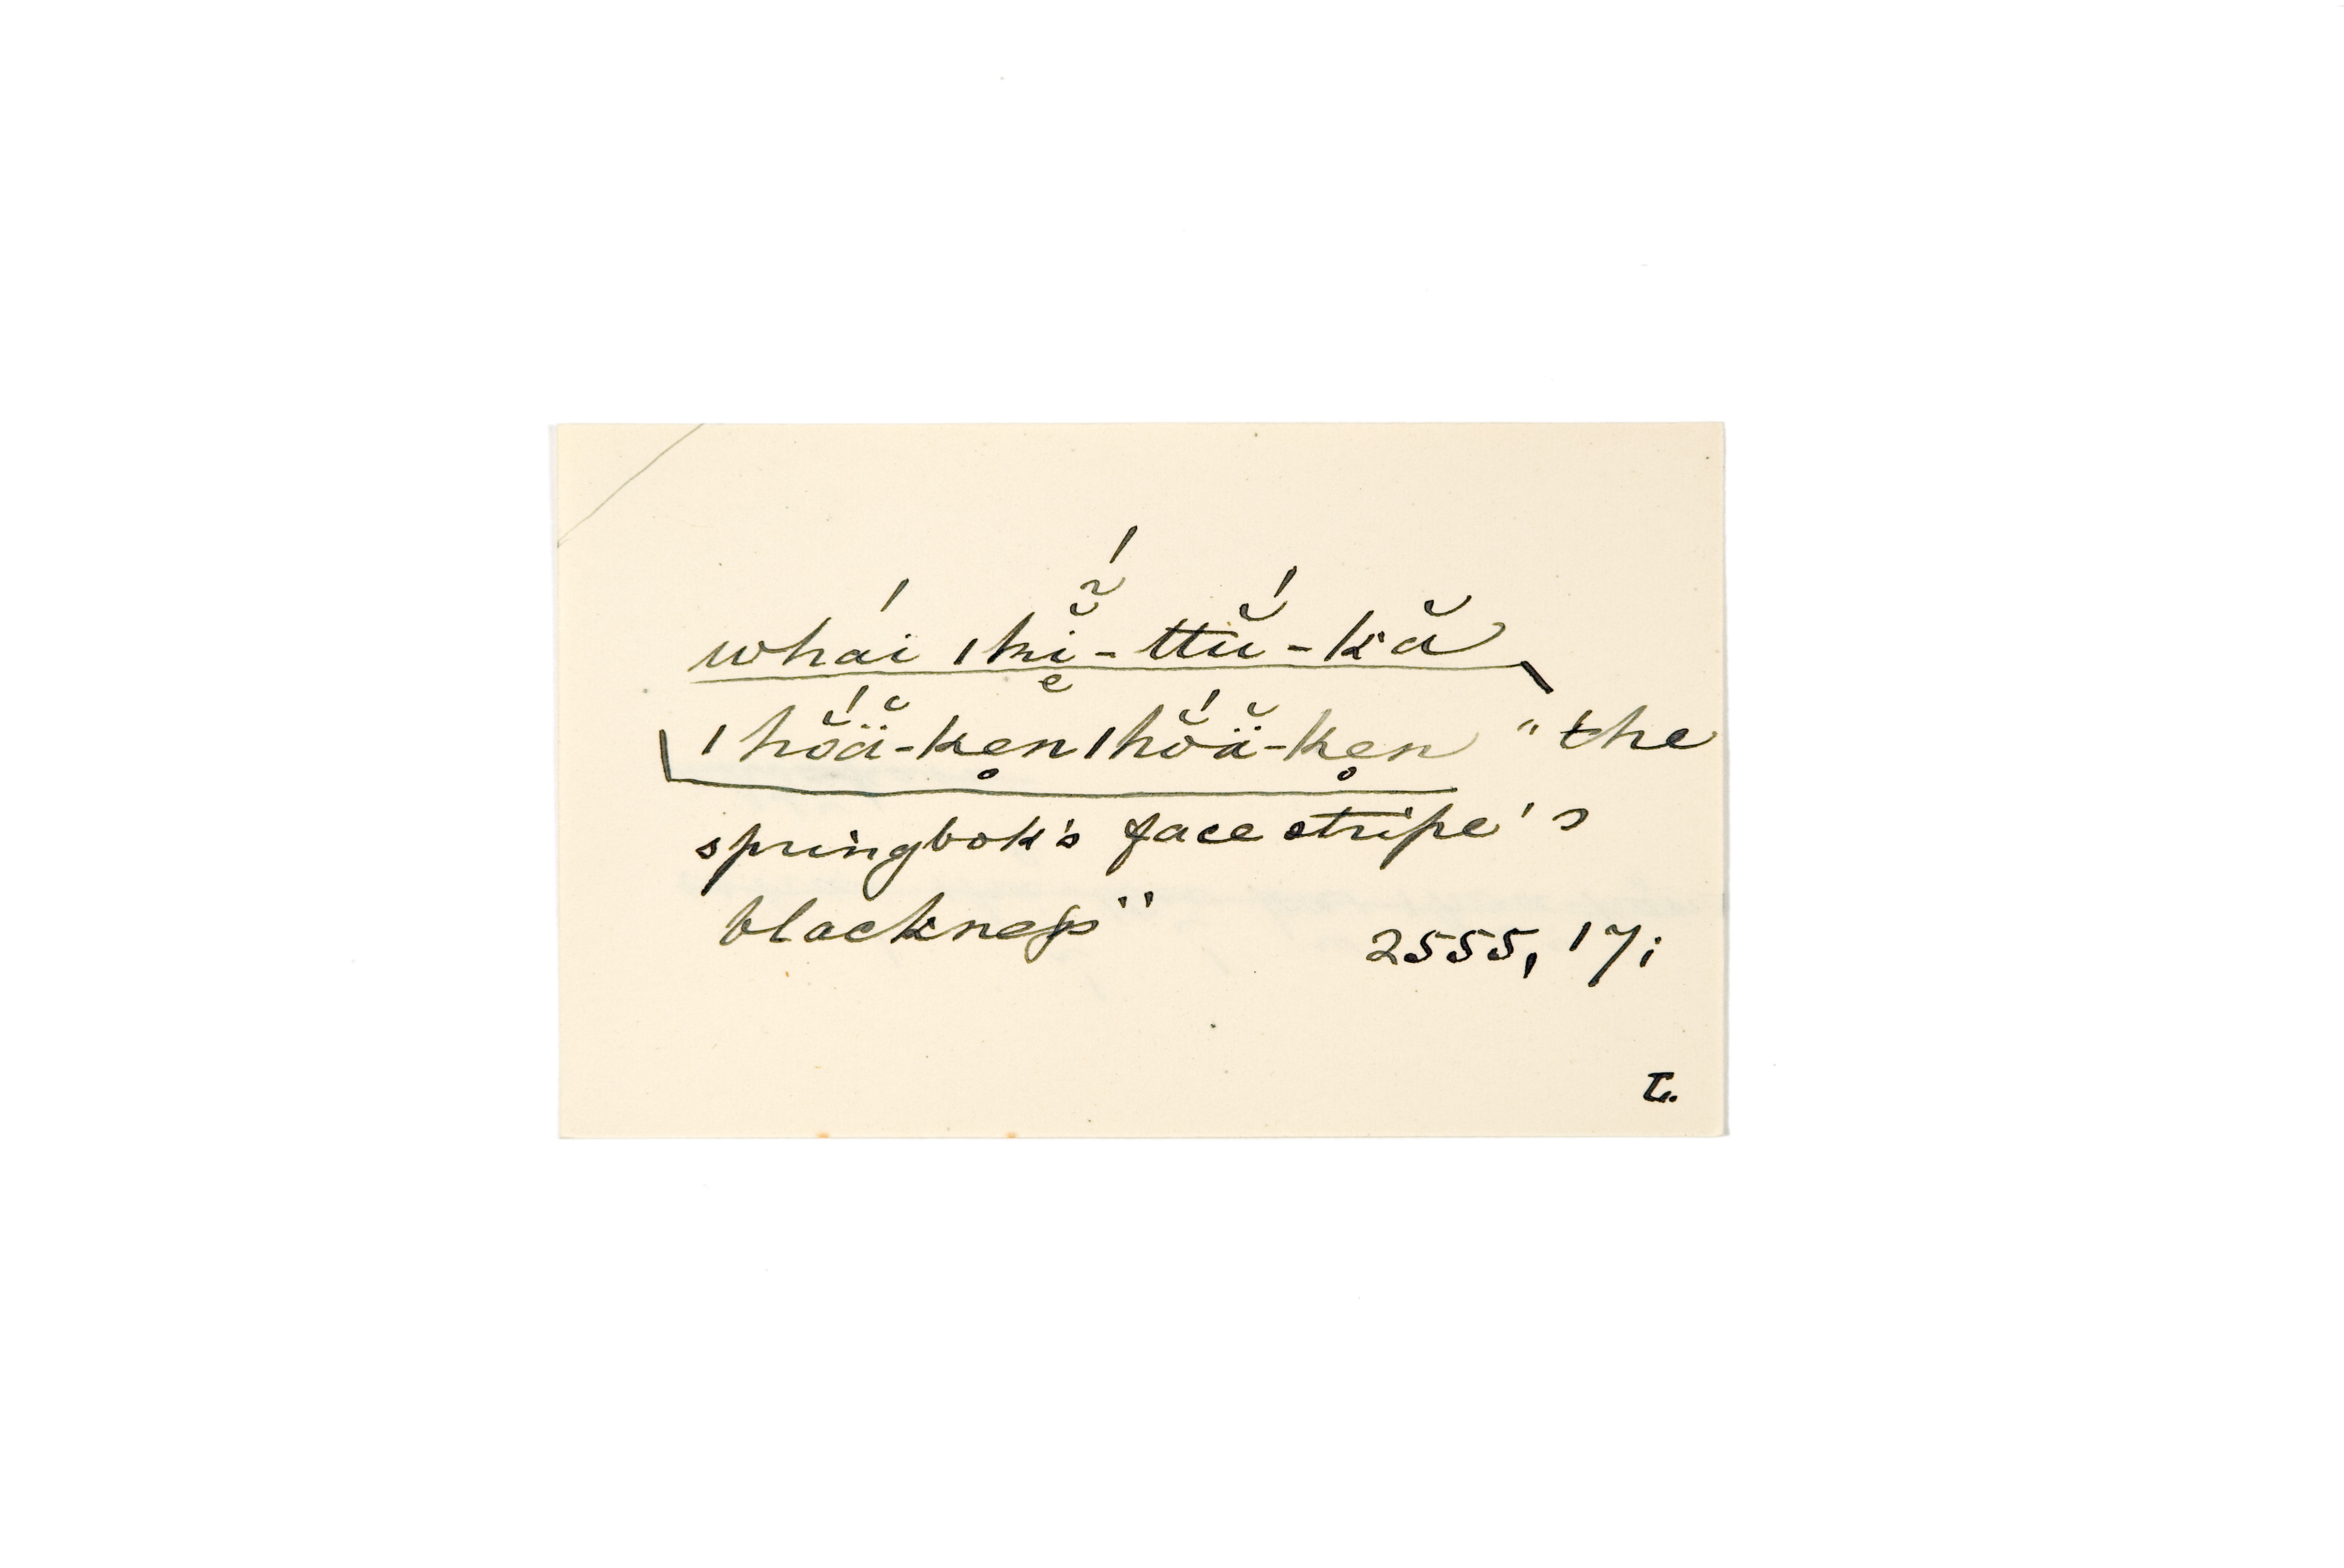 whái ǀhĭ̃́-ttŭ́-kă
ǀhŏ́ä̆-ken̥ǀhŏ́ä̆-ken̥ "the
springbok's face stripe's
blackness"
2555, 17;
L.